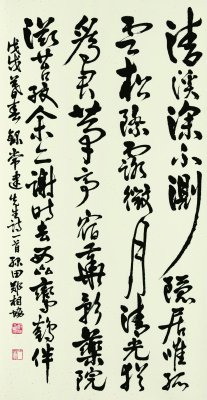 清溪深不測隱居唯孤
雲松際露微月清光猶
為君茅亭宿華影藥院
滋苔紋余亦謝時去西山鸞鶴伴
戊戌暮春錄常建先生詩一首